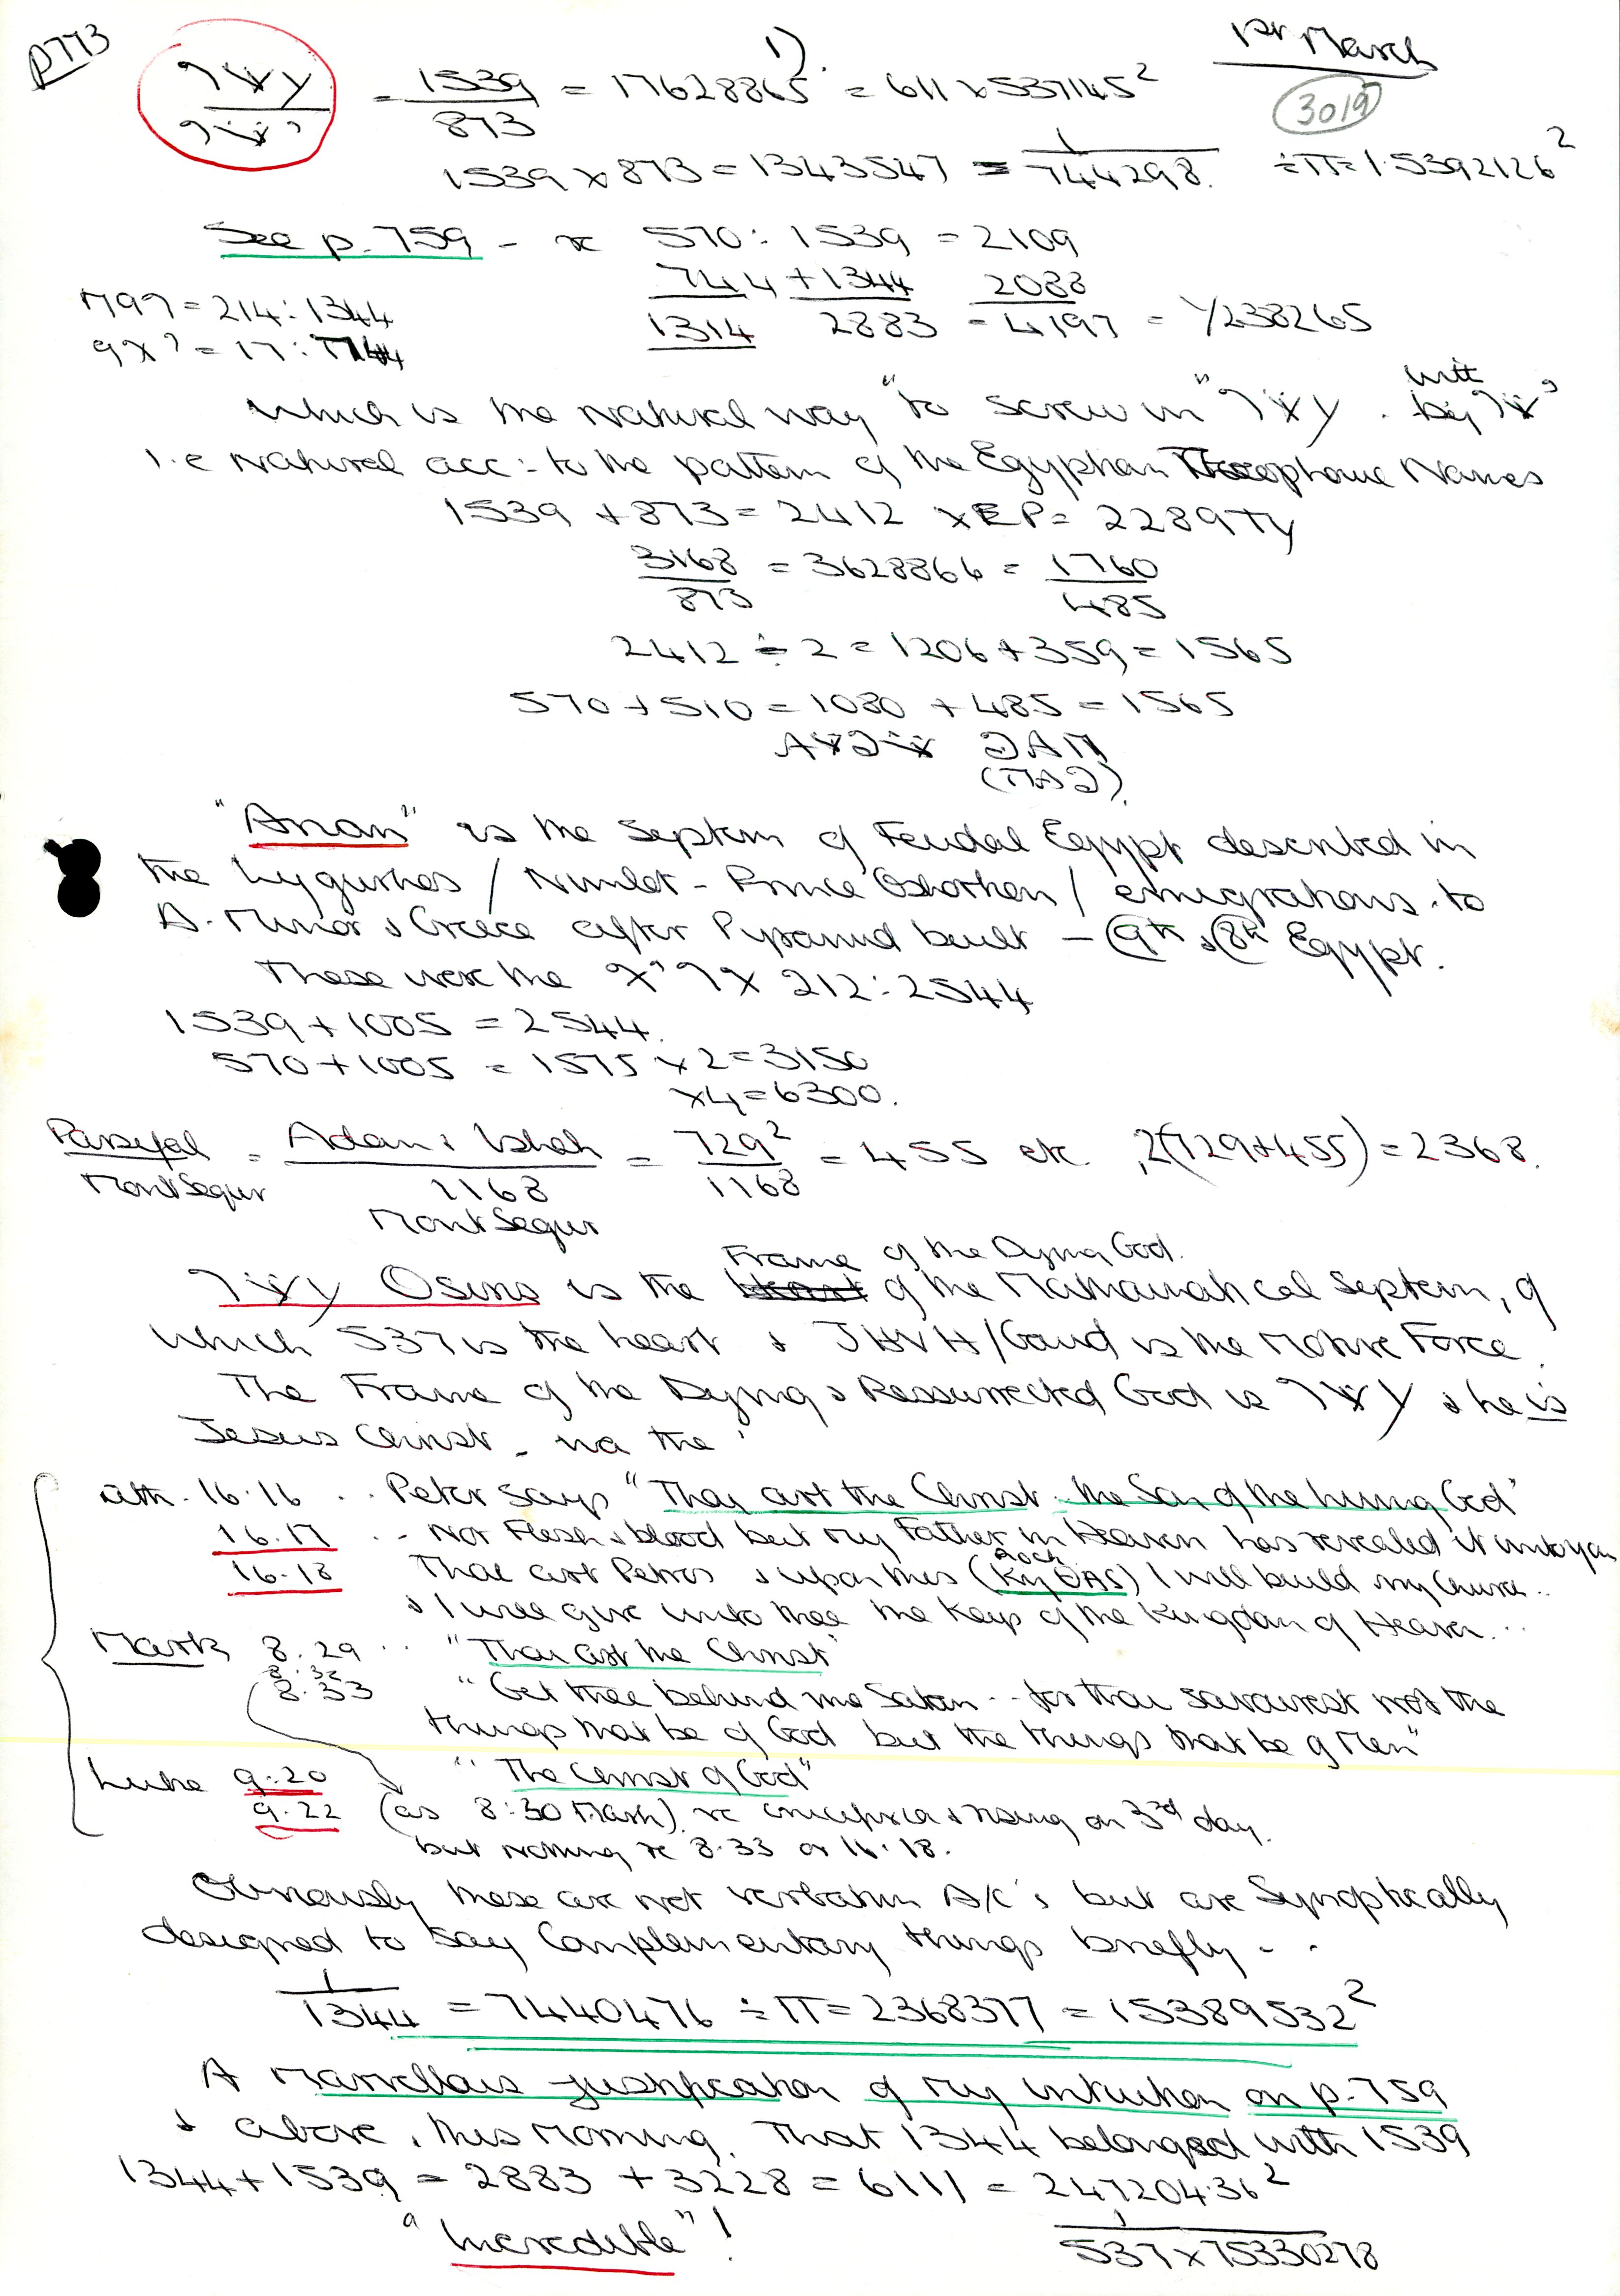 p773
1) 1st March
3019
= 1539/873 = 17628865 = 611 x 537145²
1539 x 873 = 1343547 = 1/744298. ÷π = 1.5392126²
See p. 759 - x 570 : 1539 = 2109
744 + 1344 2088
= 214 : 1344
1314 2883 = 4197 = 1/238265
= 17 : 744
Which is the natural way "to screw in" . with
i.e natural acc: to the pattern of the Egyptian Theophoric Names
1539 + 873 = 2412 x EP = 2289πy
3168/873 = 3628866 = 1760/485
2412 ÷ 2 = 1206 + 359 = 1565
570 + 510 = 1080 + 485 = 1565
" is the Septum of Feudal Egypt described in
the / Nimlot - Prince Osorkon / emigrations to
A. Minor & Greece after Pyramid built - Egypt.
These were the 212 : 2544
1539 + 1005 = 2544.
570 + 1005 = 1575 x 2 = 3150
x4 = 6300.
Parsifal/MontSegur = Adam & Ishah/1168 = 729²/1168 = 455 etc. , 2(729+455) = 2368.
MontSegur
Frame of the Dying God.
Osiris is the of the Mathematical Septum, of
which 537 is the heart & JHVH/Gaud is the Motive Force.
The Frame of the Dying & Ressurrected God is & he is
Jesus Christ - via the
Mth. 16.16 .. Peter says "Thou art the Christ - the Son of the living God"
16.17 .. Not Flesh & blood but my Father in Heaven has revealed it unto you
Rock
16.18 Thou art Petros & upon this I will build my Church ..
& I will give unto thee the Keys of the Kingdom of Heaven...
Mark 8.29 .. "Thou art the Christ"
8.32
8.33 "Get thee behind me Satan .. for thou savourest not the
things that be of God but the things that be of Men"
Luke 9.20 "The Christ of God"
9.22 (as 8:30 Mark) re & rising on 3rd day.
but nothing re 8.33 or 16.18.
Obviously these are not verbatim A/C's but are Synoptically
designed to say Complementary things briefly - .
1/1344 = 7440476 ÷ π = 2368377 = 15389532²
A Marvellous justification of my intuition on p. 759
& above, this Morning. That 1344 belonged with 1539
1344 + 1539 = 2883 + 3228 = 6111 = 247204.36²
"Incredible"! 1/537 x 75330278